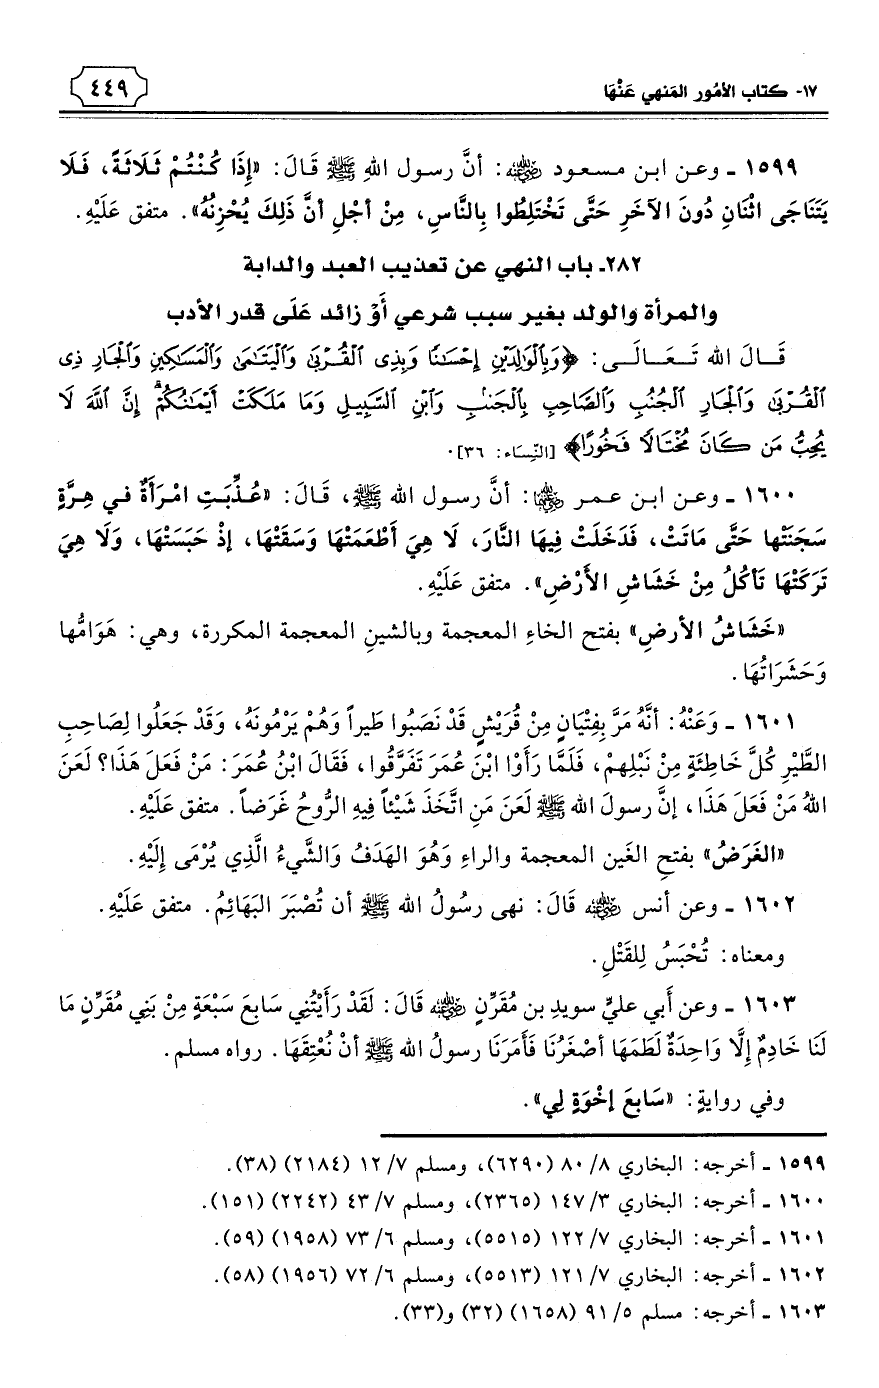 ١٧- كتاب الأمُور المَنهي عَنْهَا
٤٤٩
١٥٩٩ ـ وعن ابن مسعود ﵁: أنَّ رسول اللهِ ﷺ قَالَ: «إِذَا كُنْتُمْ ثَلَاثَةً، فَلَا
يَتَنَاجَى اثْنَانِ دُونَ الآخَرِ حَتَّى تَخْتَلِطُوا بِالنَّاسِ، مِنْ أجْلِ أنَّ ذَلِكَ يُحْزِنُهُ». متفق عَلَيْهِ.
٢٨٢ـ باب النهي عن تعذيب العبد والدابة
والمرأة والولد بغير سبب شرعي أَوْ زائد عَلَى قدر الأدب
قَالَ الله تَعَالَى: ﴿وَبِالْوَالِدَيْنِ إِحْسَانًا وَبِذِي الْقُرْبَى وَالْيَتَامَى وَالْمَسَاكِينِ وَالْجَارِ ذِي
الْقُرْبَى وَالْجَارِ الْجُنُبِ وَالصَّاحِبِ بِالْجَنْبِ وَابْنِ السَّبِيلِ وَمَا مَلَكَتْ أَيْمَانُكُمْ إِنَّ اللَّهَ لَا
يُحِبُّ مَن كَانَ مُخْتَالًا فَخُورًا﴾ [النِّسَاء: ٣٦].
١٦٠٠ ـ وعن ابن عمر ﵄: أنَّ رسول الله ﷺ، قَالَ: «عُذِّبَتِ امْرَأَةٌ في هِرَّةٍ
سَجَنَتْها حَتَّى مَاتَتْ، فَدَخَلَتْ فِيهَا النَّارَ، لَا هِيَ أَطْعَمَتْهَا وَسَقَتْهَا، إذْ حَبَسَتْهَا، وَلَا هِيَ
تَرَكَتْهَا تَأكُلُ مِنْ خَشَاشِ الأَرْضِ». متفق عَلَيْهِ.
«خَشَاشُ الأرضِ» بفتح الخاءِ المعجمة وبالشينِ المعجمة المكررة، وهي: هَوَامُّها
وَحَشَرَاتُهَا.
١٦٠١ ـ وَعَنْهُ: أنَّهُ مَرَّ بِفِتْيَانٍ مِنْ قُرَيْشٍ قَدْ نَصَبُوا طَيراً وَهُمْ يَرْمُونَهُ، وَقَدْ جَعَلُوا لِصَاحِبِ
الطَّيْرِ كُلَّ خَاطِئَةٍ مِنْ نَبْلِهمْ، فَلَمَّا رَأَوْا ابْنَ عُمَرَ تَفَرَّقُوا، فَقَالَ ابْنُ عُمَرَ: مَنْ فَعَلَ هَذَا؟ لَعَنَ
اللهُ مَنْ فَعَلَ هَذَا، إنَّ رسولَ الله ﷺ لَعَنَ مَنِ اتَّخَذَ شَيْئاً فِيهِ الرُّوحُ غَرَضاً. متفق عَلَيْهِ.
«الغَرَضُ» بفتحِ الغَين المعجمة والراءِ وَهُوَ الهَدَفُ وَالشَّيءُ الَّذِي يُرْمَى إلَيْهِ.
١٦٠٢ ـ وعن أنس ﵁ قَالَ: نهى رسُولُ الله ﷺ أن تُصْبَرَ البَهَائِمُ. متفق عَلَيْهِ.
ومعناه: تُحْبَسُ لِلقَتْلِ.
١٦٠٣ ـ وعن أَبي عليٍّ سويدِ بن مُقَرِّنٍ ﵁ قَالَ: لَقَدْ رَأَيْتُنِي سَابِعَ سَبْعَةٍ مِنْ بَنِي مُقَرِّنٍ مَا
لَنَا خَادِمٌ إلَّا وَاحِدَةٌ لَطَمَهَا أصْغَرُنَا فَأَمَرَنَا رسولُ الله ﷺ أنْ نُعْتِقَهَا. رواه مسلم.
وفي روايةٍ: «سَابعَ إخْوَةٍ لِي».
١٥٩٩ ـ أخرجه: البخاري ٨/ ٨٠ (٦٢٩٠)، ومسلم ٧/ ١٢ (٢١٨٤) (٣٨).
١٦٠٠ ـ أخرجه: البخاري ٣/ ١٤٧ (٢٣٦٥)، ومسلم ٧/ ٤٣ (٢٢٤٢) (١٥١).
١٦٠١ ـ أخرجه: البخاري ٧/ ١٢٢ (٥٥١٥)، ومسلم ٦/ ٧٣ (١٩٥٨) (٥٩).
١٦٠٢ ـ أخرجه: البخاري ٧/ ١٢١ (٥٥١٣)، ومسلم ٦/ ٧٢ (١٩٥٦) (٥٨).
١٦٠٣ ـ أخرجه: مسلم ٥/ ٩١ (١٦٥٨) (٣٢) و(٣٣).